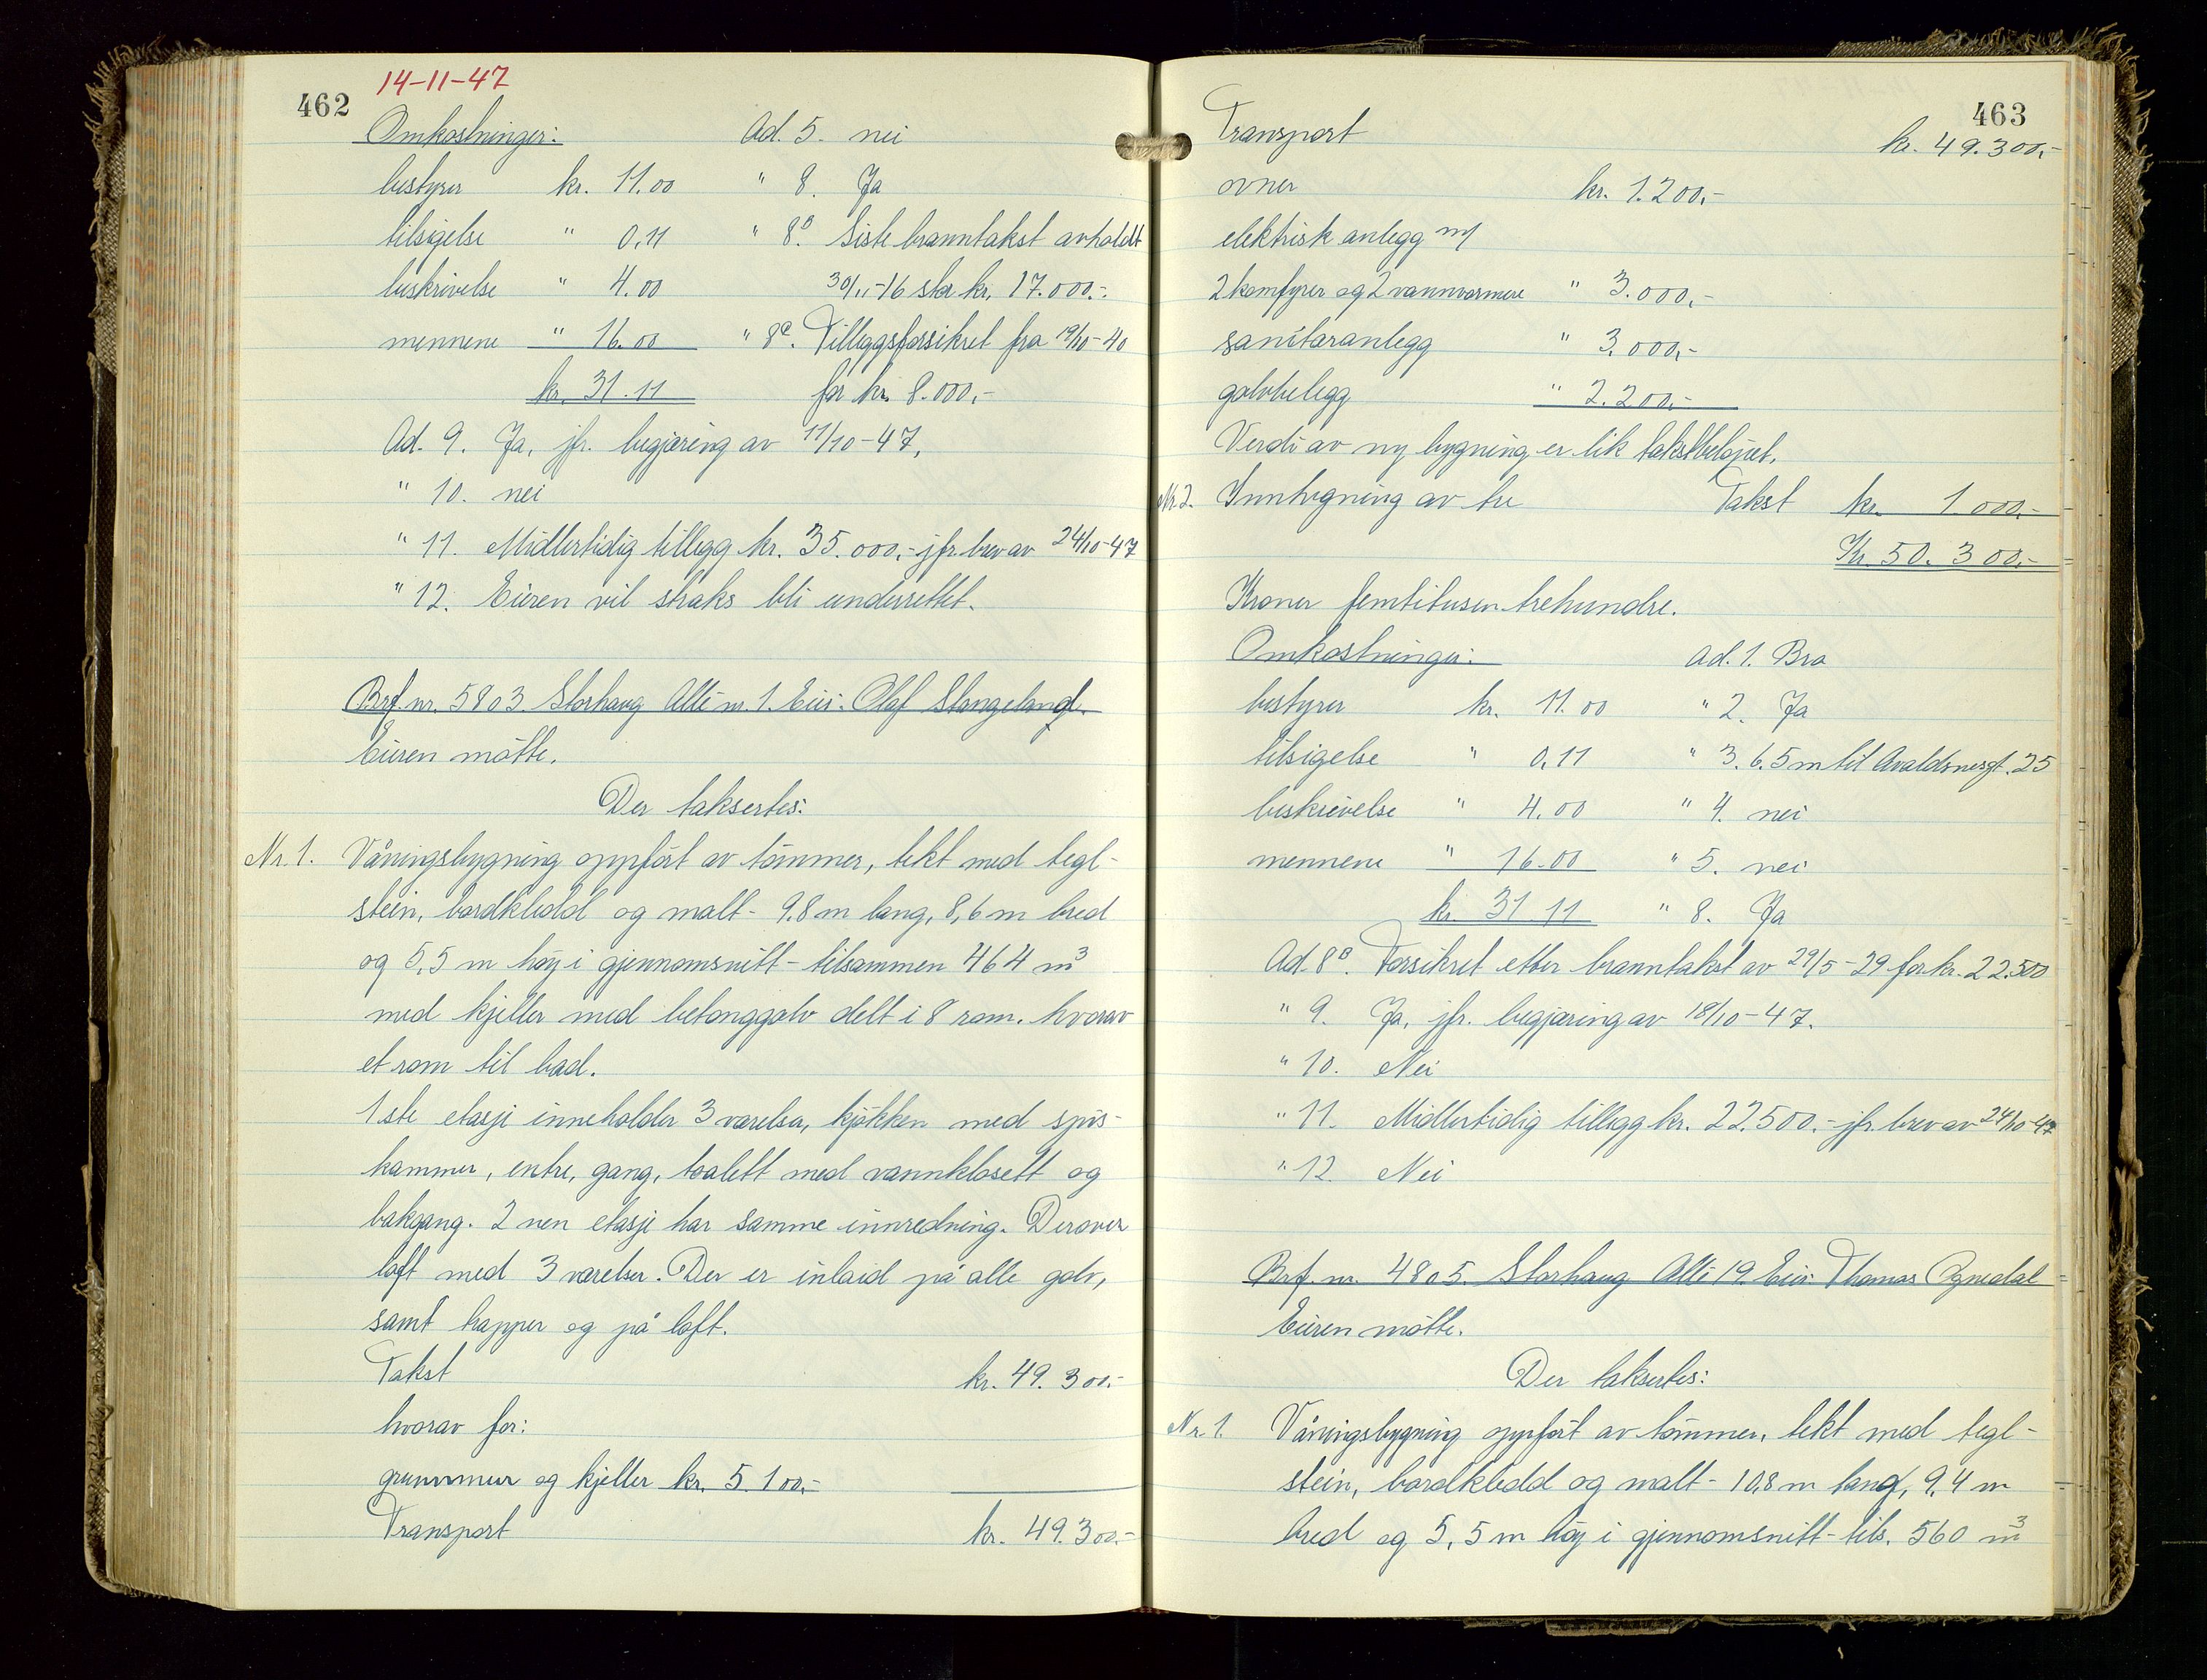 462
14-11-47
Omkostninger: Ad. 5. nei
bestyrer kr. 11.00 " 8. Ja
tilsigelse " 0,11 " 8B. Siste branntakst avholdt
beskrivelse " 4.00 30/11-16 stor kr. 17.000.-
mennene " 16.00 " 8C. Tilleggsforsikret fra 19/10-40
kr. 31.11 for kr. 8.000,-
Ad. 9. Ja, jfr. begjæring av 11/10-47.
" 10. nei
" 11. Midlertidig tillegg kr. 35.000,- jfr. brev av 24/10-47
" 12. Eieren vil straks bli underrettet.
Brf. nr. 5803 Storhaug Allé nr. 1. Eier: Olaf Stangeland.
Eieren møtte.
Der taksertes:
Nr. 1. Våningsbygning oppført av tømmer, tekt med tegl-
stein, bordkledd og malt - 9.8 m lang, 8,6 m bred
og 5,5 m høy i gjennomsnitt - tilsammen 464 m3
med kjeller med betonggolv delt i 8 rom. hvorav
et rom til bad.
1ste etasje inneholder 3 værelser, kjøkken med spis-
kammer, entre, gang, toalett med vannklosett og
bakgang. 2nen etasje har samme innredning. Derover
loft med 3 værelser. Der er inlaid på alle golv,
samt trapper og på loft.
Takst kr. 49.300.-
hvorav for:
grunnmur og kjeller kr. 5.100,-
Transport kr. 49.300.-
463
Transport kr. 49.300,-
ovner kr. 1.200,-
elektrisk anlegg m/
2 komfyrer og 2 vannvarmere " 3.000,-
sanitæranlegg " 3.000,-
golvbelegg " 2.200,-
Verdi av ny bygning er lik takstbeløpet.
Nr. 2. Innhegning av tre Takst kr. 1.000.-
Kr. 50.300,-
Kroner femtitusen trehundre.
Omkostninger: Ad. 1. Bra
bestyrer kr. 11.00 " 2. Ja
tilsigelse " 0,11 " 3. 6.5 m til Avaldsnesgt. 25
beskrivelse " 4.00 " 4. nei
mennene " 16.00 " 5. nei
kr. 31 11 " 8. Ja
Ad. 8B. Forsikret etter branntakst av 29/5-29 for kr. 22.500
" 9. Ja, jfr. begjæring av 18/10-47.
" 10. Nei
" 11. Midlertidig tillegg kr. 22.500.- jfr. brev av 24/10-47
" 12. Nei
Brf. nr. 4805 Storhaug Allé 19. Eier: Thomas Ognedal
Eieren møtte.
Der taksertes:
Nr. 1. Våningsbygning oppført av tømmer, tekt med tegl-
stein, bordkledd og malt - 10,8 m lang, 9,4 m
bred og 5,5 m høy i gjennomsnitt - tils. 560 m3